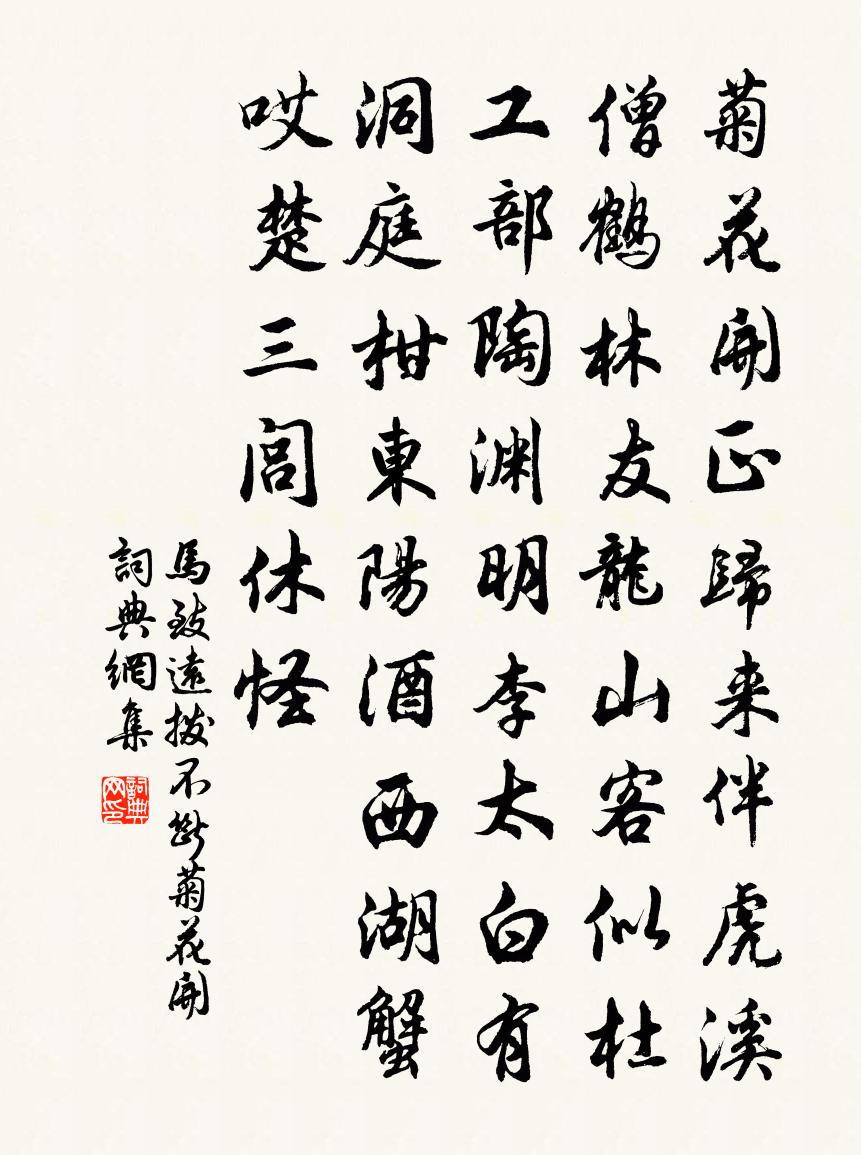 菊花開正歸来伴虎溪
僧鶴林友龍山客似杜
工部陶渊明李太白有
洞庭柑東陽酒西湖蟹
哎楚三閭休怪
馬致遠撥不斷菊花開
詞典網集
詞典
网印